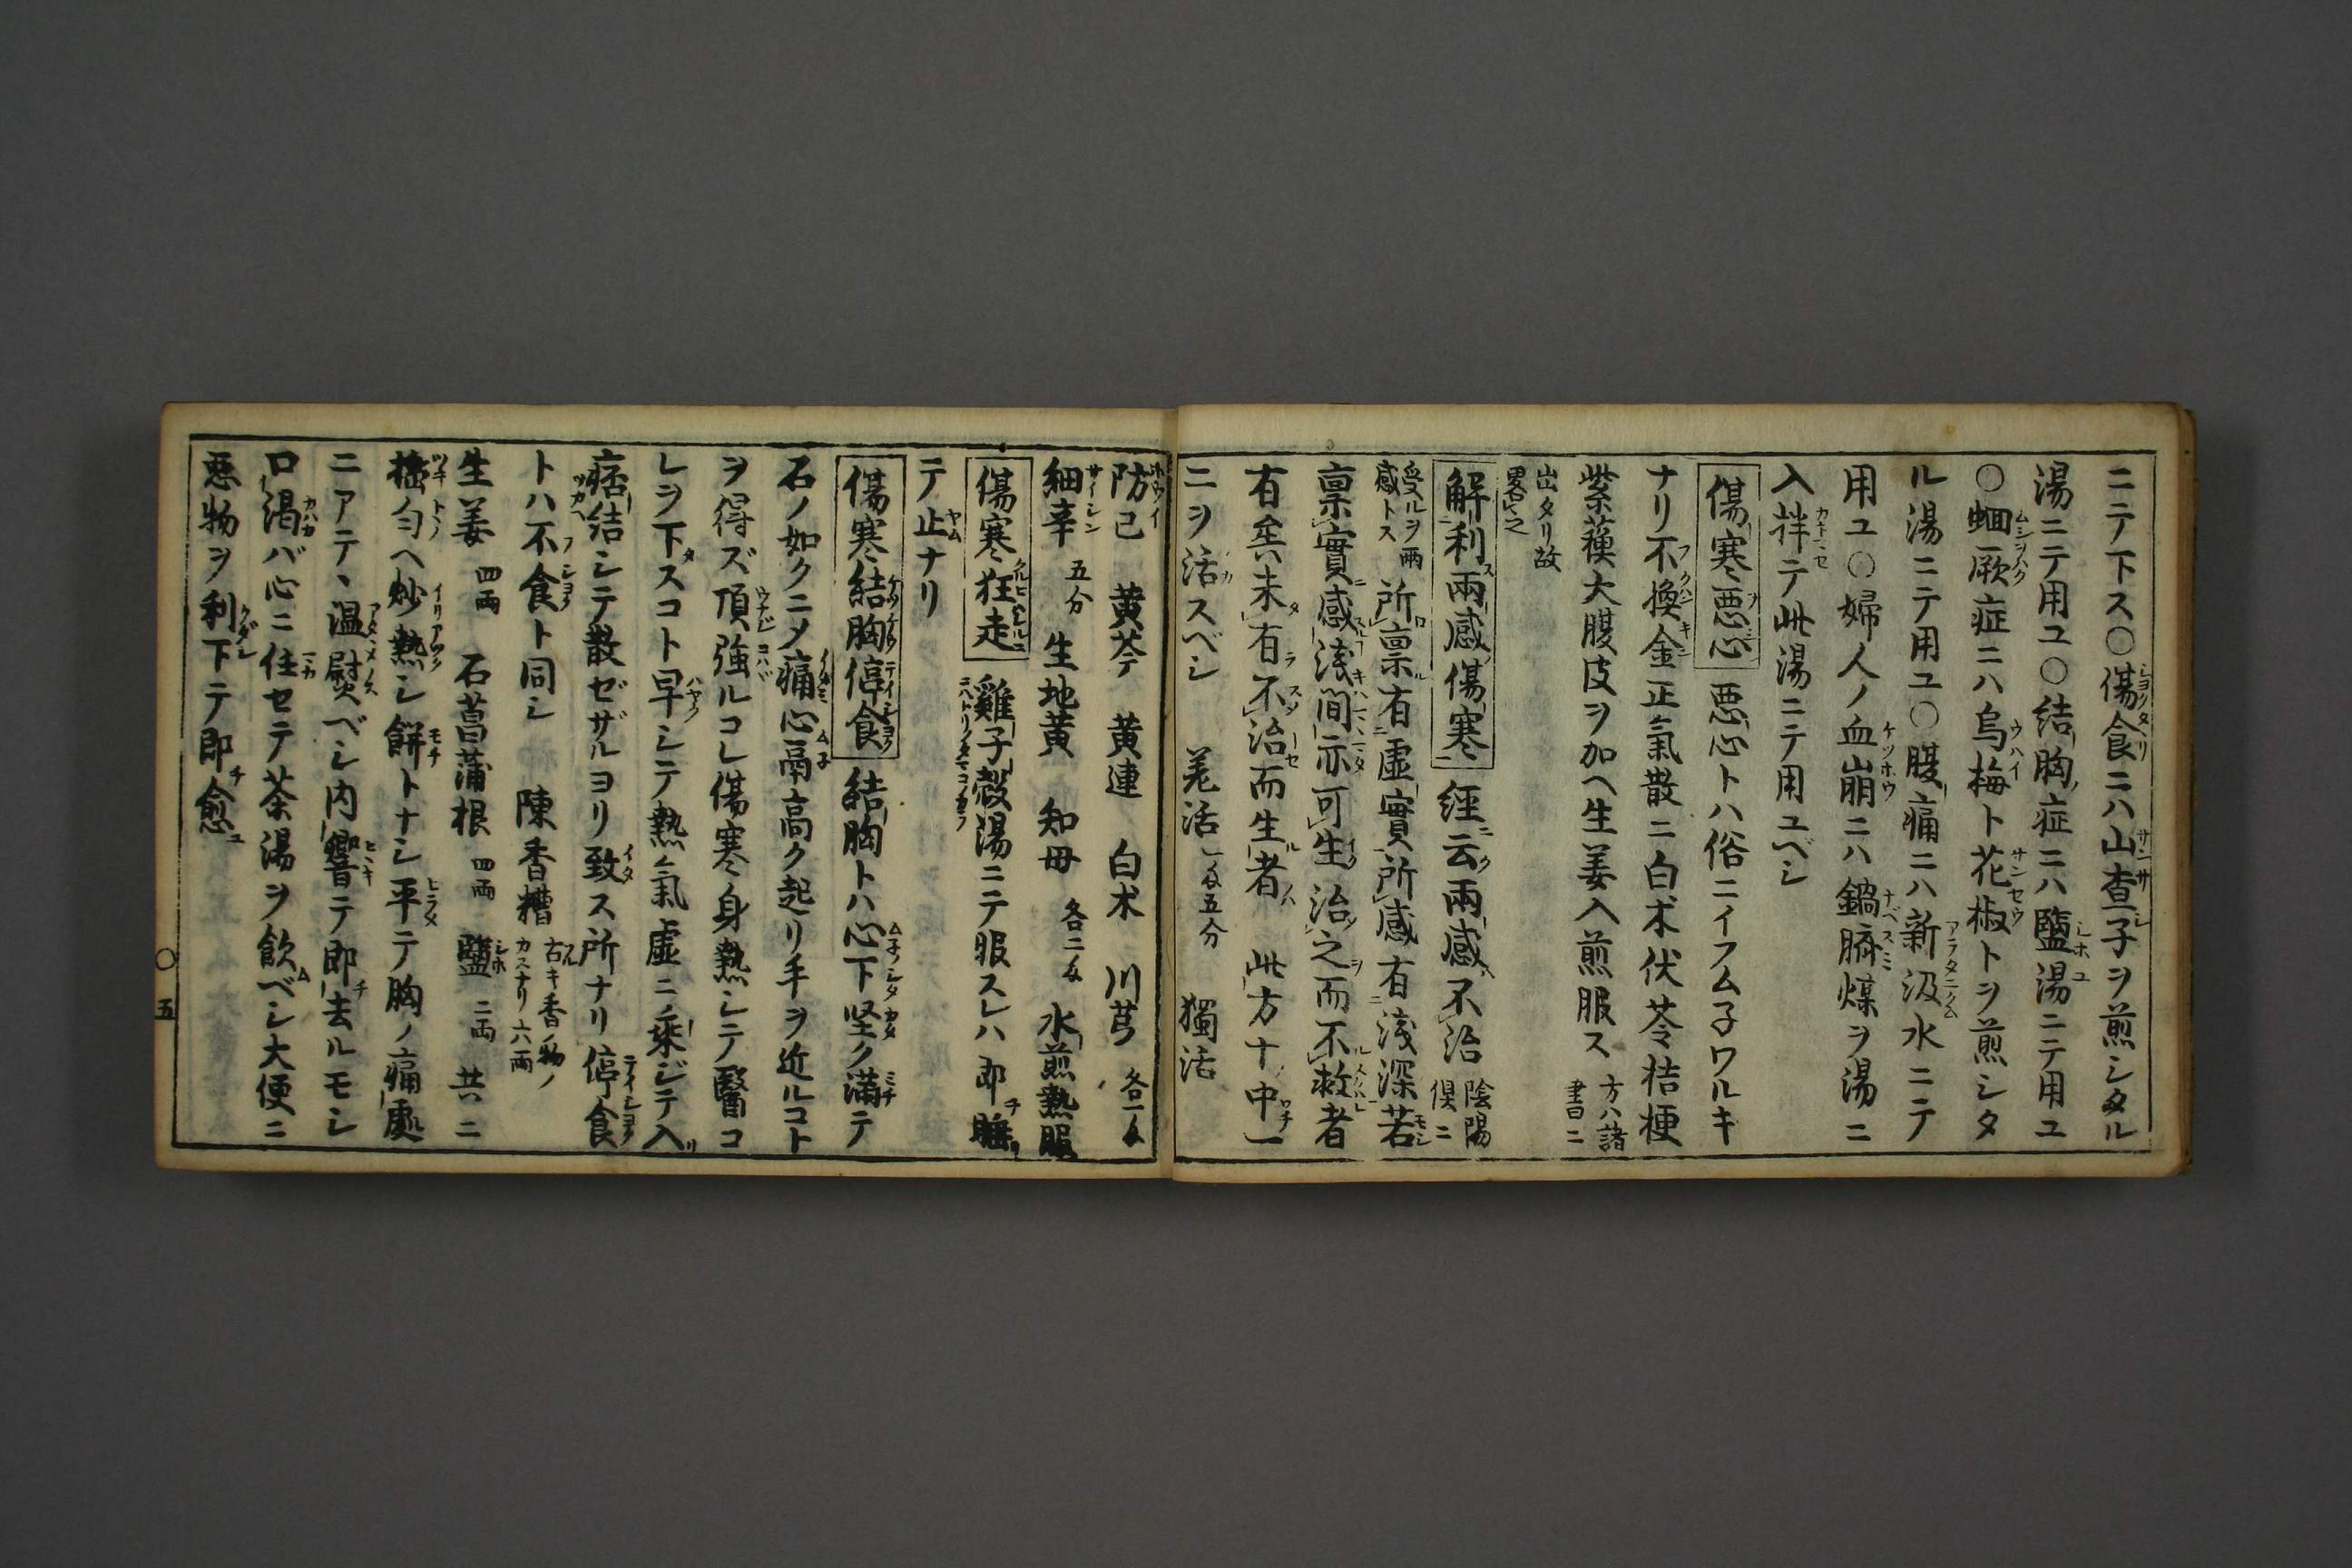 ニテ下ス○傷食ニハ山査子ヲ煎シタル
湯ニテ用ユ○結胸症ニハ鹽湯ニテ用ユ
○蛔厥症ニハ烏梅ト花椒トヲ煎シタ
ル湯ニテ用ユ○腹痛ニハ新汲水ニテ
用ユ○婦人ノ血崩ニハ鍋臍煤ヲ湯ニ
入拌テ此湯ニテ用ユベシ
傷寒悪心 悪心トハ俗ニイフム子ワルキ
ナリ不換金正氣散ニ白朮伏苓桔梗
紫蘓大腹皮ヲ加ヘ生姜入煎服ス 方ハ諸書ニ
出タリ故畧之
解利兩感傷寒 經云兩感不治 陰陽倶ニ
受ルヲ兩感トス 所禀有虚實所感有淺深若
禀實感淺間亦可生治之而不救者
有矣未有不治而生者 此方十中一
二ヲ活スベシ 羗活 一匁五分 獨活
防已 黄芩 黄連 白朮 川芎 各一匁
細辛 五分 生地黄 知母 各二匁 水煎熱服
傷寒狂走 雞子殻湯ニテ服スレハ即睡
テ止ナリ
傷寒結胸停食 結胸トハ心下堅ク満テ
石ノ如クニメ痛心鬲高ク起リ手ヲ近ルコト
ヲ得ズ頂強ルコレ傷寒身熱シテ醫コ
レヲ下スコト早シテ熱氣虚ニ乘ジテ入
痞結シテ散ゼザルヨリ致ス所ナリ停食
トハ不食ト同シ 陳香糟 古キ香ノ物ノカスナリ六兩
生姜 四兩 石菖蒲根 四兩 鹽 二兩 共ニ
搗匀ヘ炒熱シ餅トナシ平テ胸ノ痛處
ニアテヽ温熨ベシ内響テ即去ルモシ
口渇バ心ニ任セテ茶湯ヲ飲ベシ大便ニ
悪物ヲ利下テ即愈
○五